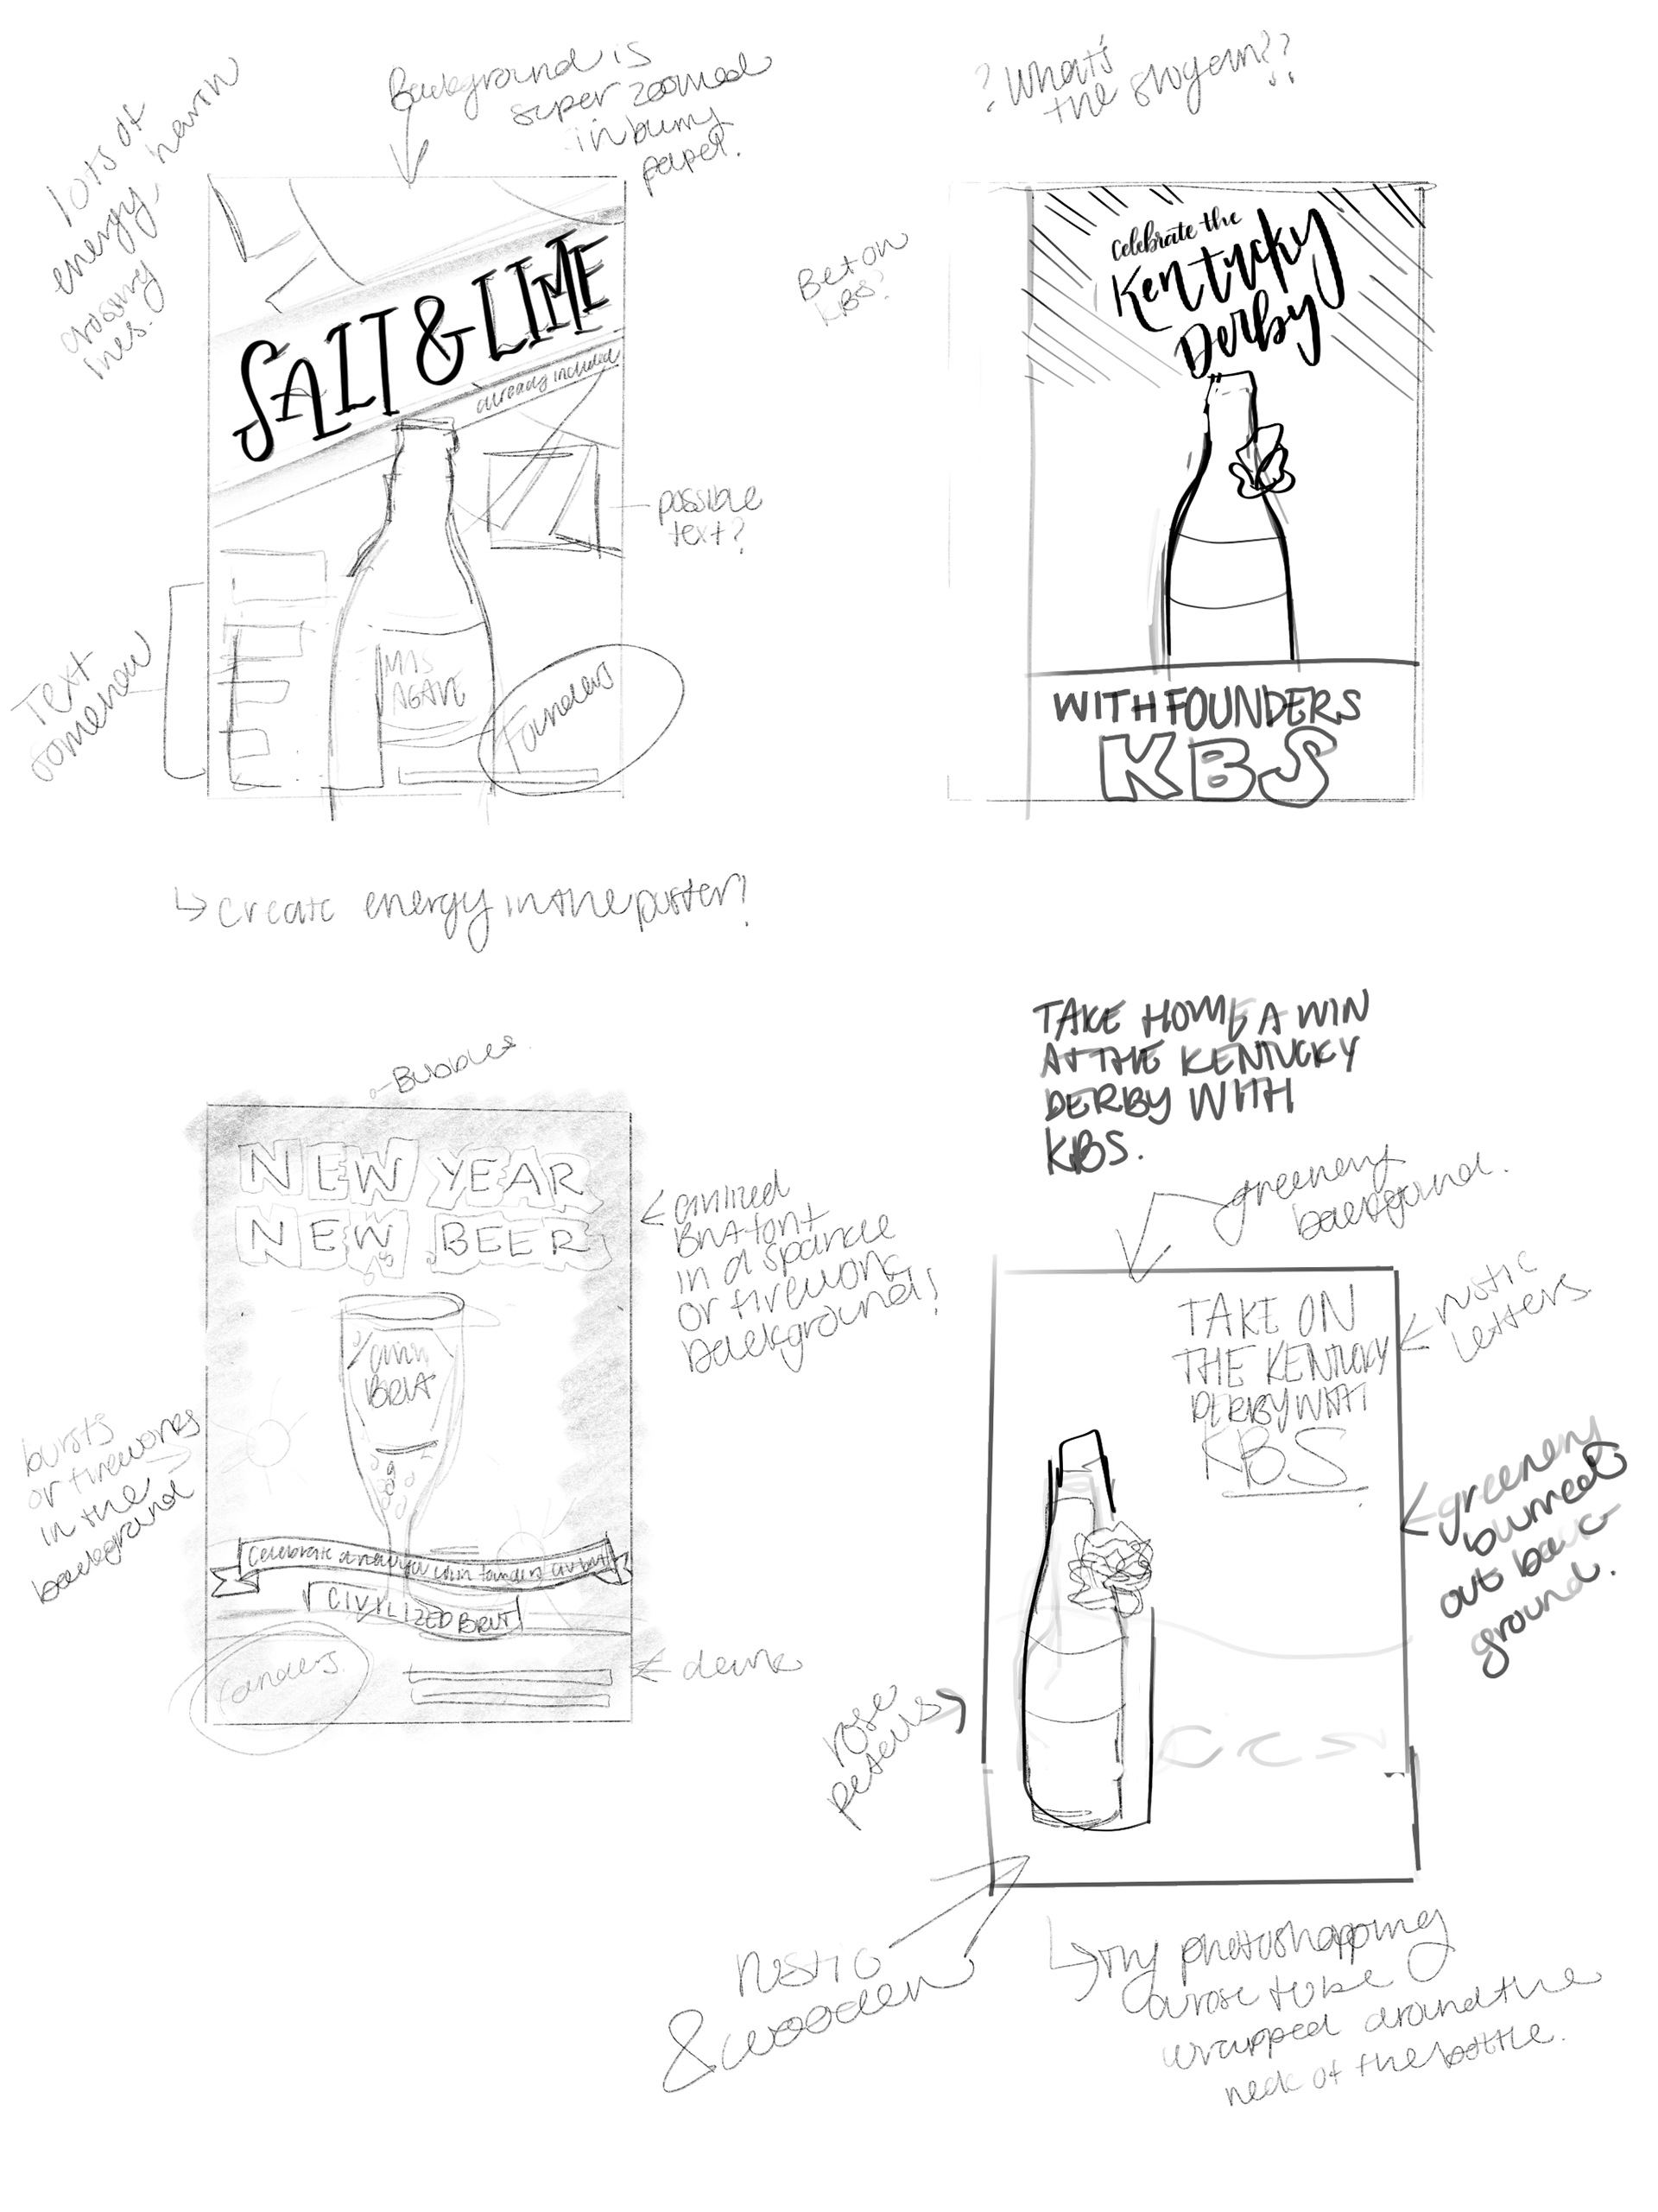 lots of
energy
crossing
lines.
Background is
super zoomed
in
paper.
SALT & LIME
already included
possible
text?
Text
somehow
MAS
AGAVE
Founders
↳ create energy in the poster!
? What's
the slogan??
Bet on
KBS?
Celebrate the
Kentucky
Derby
WITH FOUNDERS
KBS
Bubbles
NEW YEAR
NEW BEER
BRUT
Celebrate a new year with founders
CIVILIZED BRUT
founders
Brut font
in a sparkle
or firework
background!
bursts
or fireworks
in the
background
TAKE HOME A WIN
AT THE KENTUCKY
DERBY WITH
KBS.
greenery
background.
TAKE ON
THE KENTUCKY
DERBY
KBS
rustic
letters
greenery
blurred
out back
ground.
rose
petals
rustic
& wooden
↳ try photoshopping
a rose to be
wrapped around the
neck of the bottle.